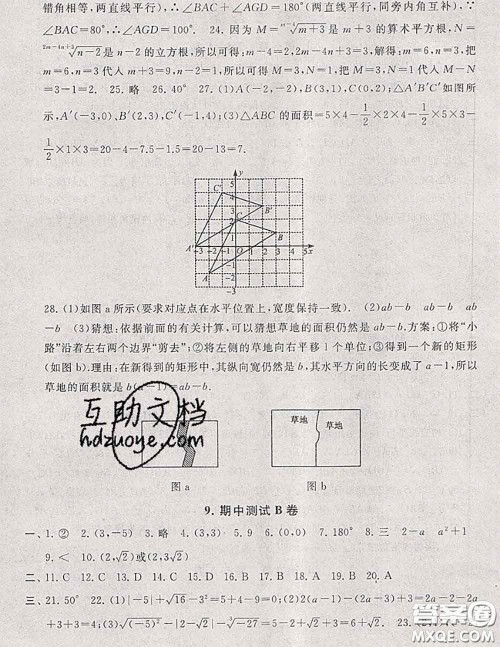 错角相等,两直线平行),∴∠BAC+∠AGD=180°(两直线平行,同旁内角互补),∵
∠BAC=80°,∴∠AGD=100°. 24. 因为 M=ᵐ⁻⁴√(m+3) 是 m+3 的算术平方根,N=
²ᵐ⁻⁴ⁿ⁺³√(n-2) 是 n-2 的立方根,所以可得:m-4=2,2m-4n+3=3,解得:m=6,n=3,把
m=6,n=3 代入 m+3=9,n-2=1,所以可得 M=3,N=1,把 M=3,N=1 代入 M-N
=3-1=2. 25. 略 26. 40° 27. (1)A(-1,-2),B(3,1),C(0,2);△A′B′C′如图所
示,A′(-3,0)、B′(2,3),C′(-1,4);(3)△ABC 的面积=5×4-1/2×2×4-1/2×5×3-
1/2×1×3=20-4-7.5-1.5=20-13=7.
28. (1)如图 a 所示(要求对应点在水平位置上,宽度保持一致). (2)ab-b ab-b ab
-b (3)猜想:依据前面的有关计算,可以猜想草地的面积仍然是 ab-b. 方案:①将“小
路”沿着左右两个边界“剪去”;②将左侧的草地向右平移 1 个单位;③得到一个新的矩形
(如图 b). 理由:在新得到的矩形中,其纵向宽仍然是 b,其水平方向的长变成了 a-1,所以
草地的面积就是 b(a-1)=ab-b.
互助文档
hdzuoye.com
草地 草地
图 a 图 b
9. 期中测试 B 卷
一、1. ② 2. (3,-5) 3. 略 4. (3,3) 5. 9 6. (0,0) 7. 180° 8. 三 2-a a²+1
9. < 10. (2,√2)或(2,3√2)
二、11. C 12. C 13. D 14. C 15. C 16. D 17. B 18. B 19. B 20. A
三、21. 50° 22. (1)|-5|+√16-3²=5+4-9=0;(2)2(a-1)-(2a-3)+3=2a-2-2a
+3+3=4;(3)√(-5)²-|2-√2|-³√-27=5-2+√2+3=6+√2.
答案圈
MXQE.COM